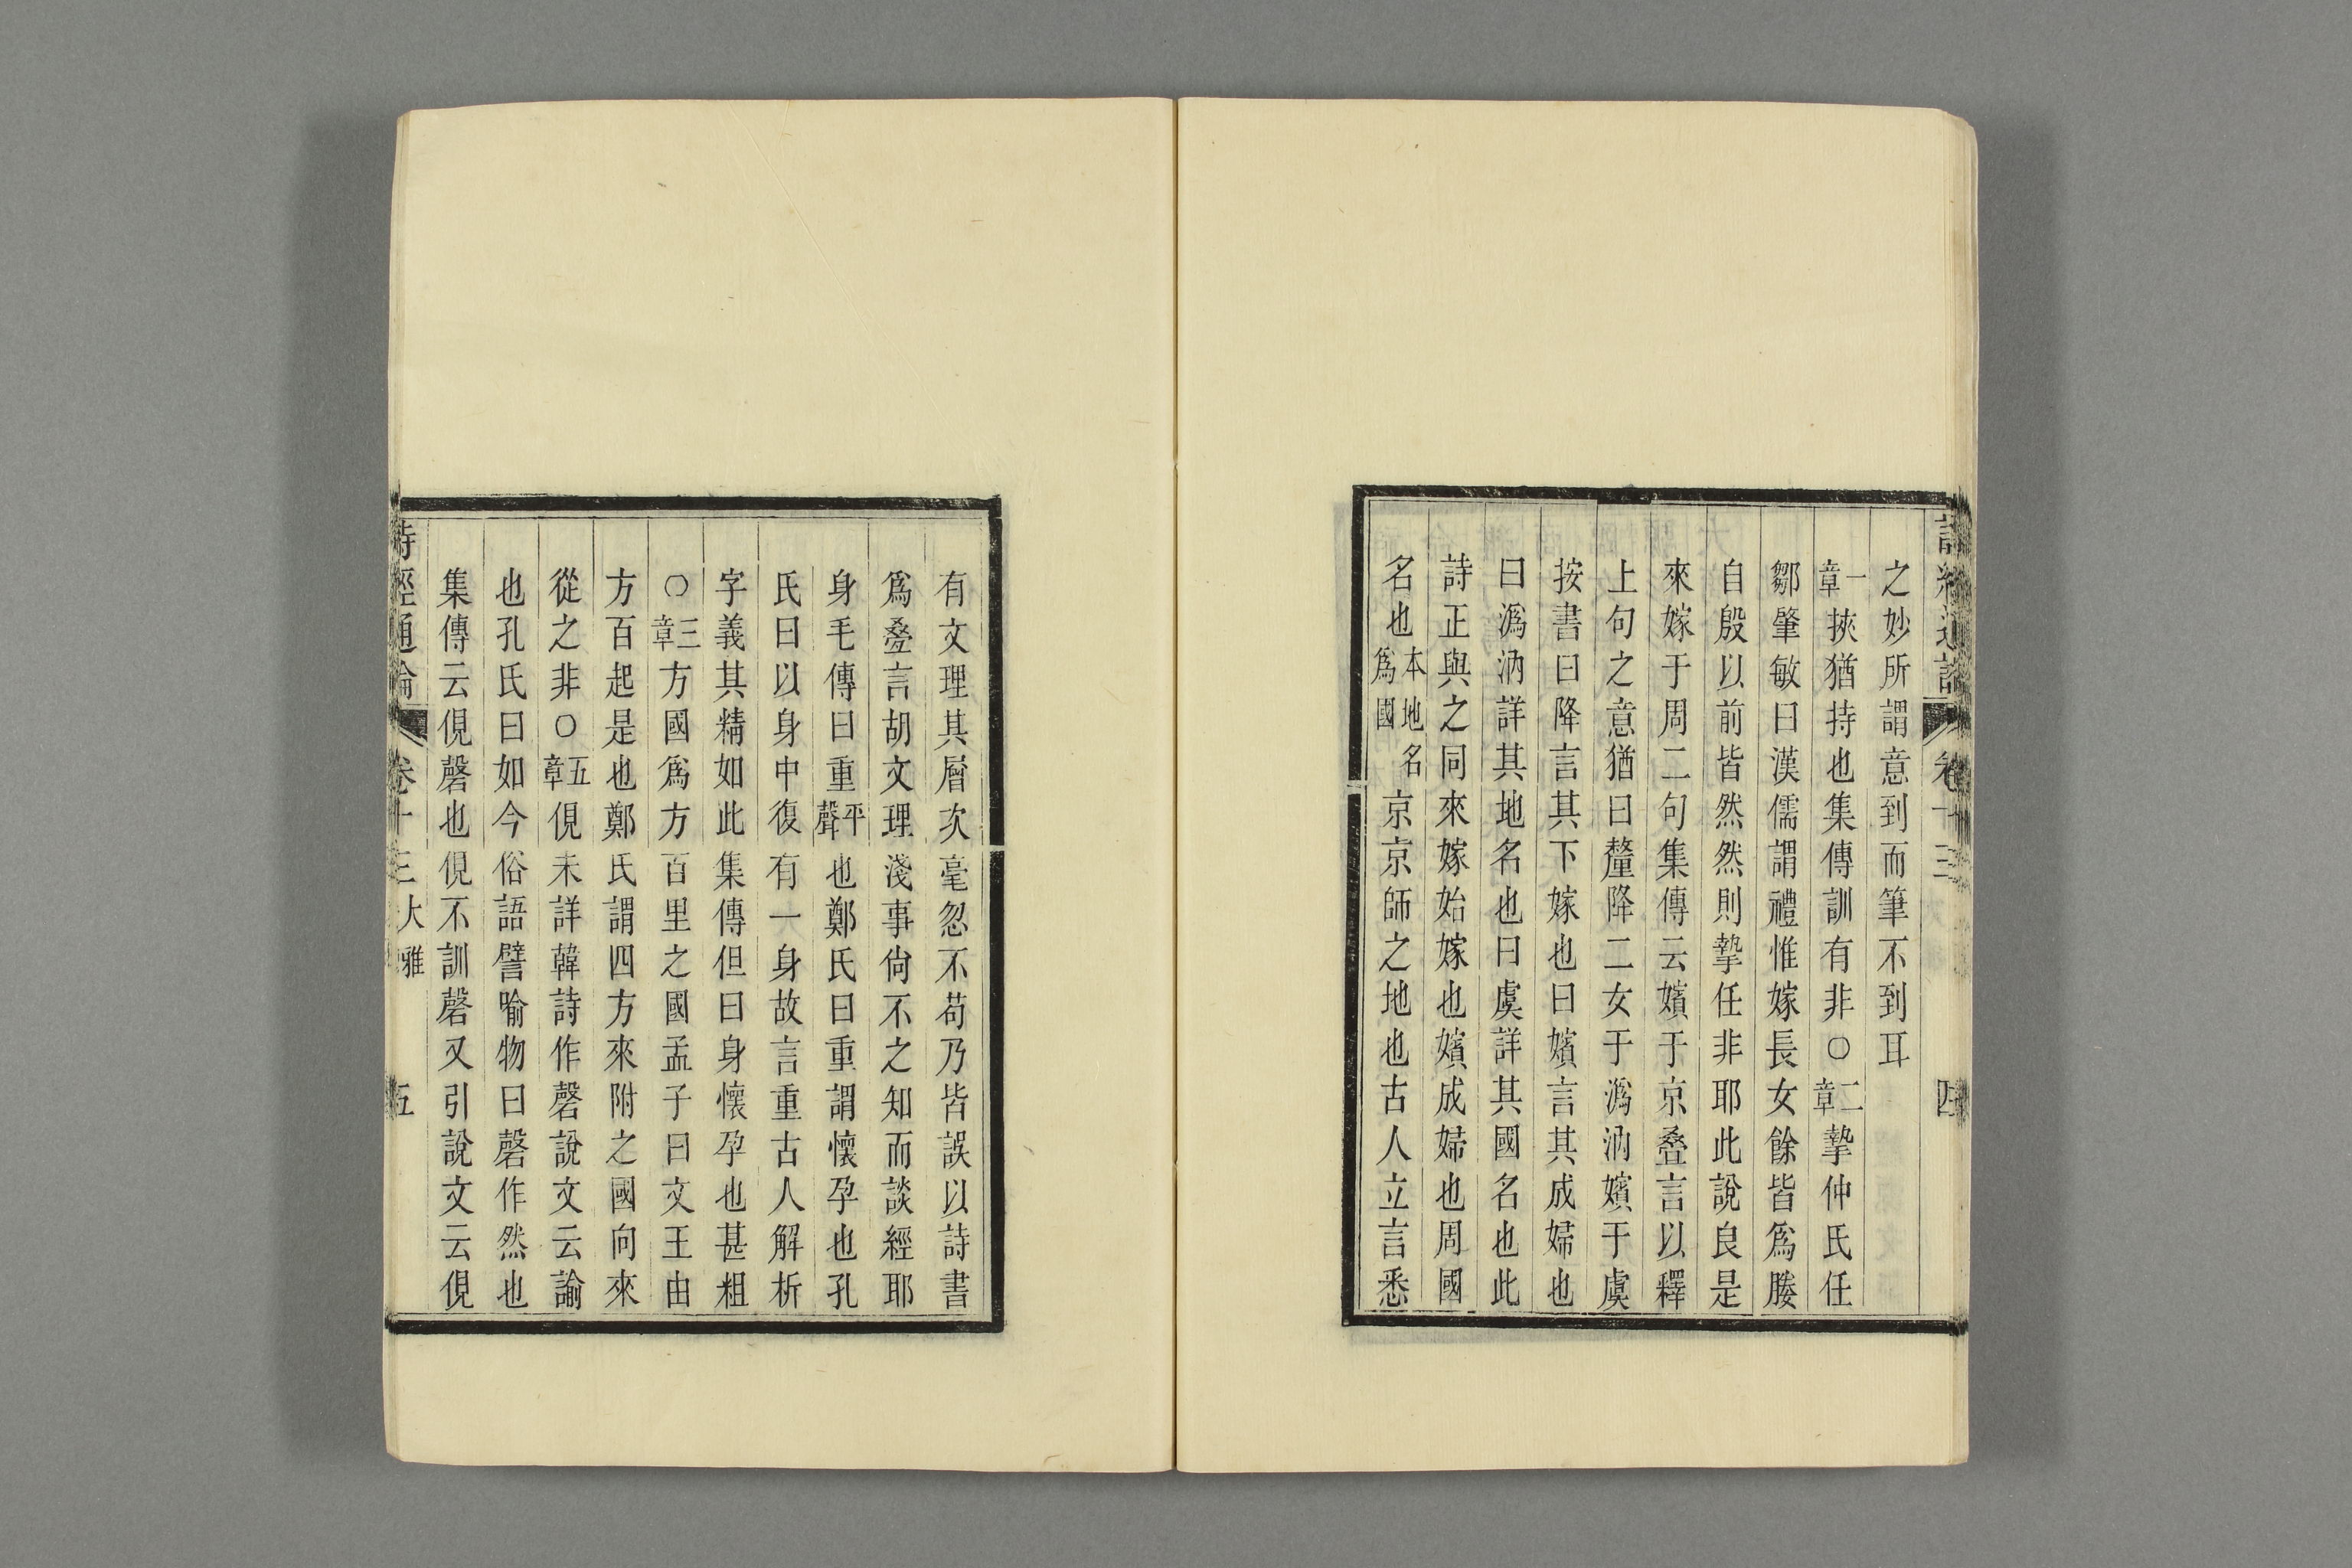 詩經通論 卷十三 四
之妙所謂意到而筆不到耳
一章挾猶持也集傳訓有非○二章摯仲氏任
鄒肇敏曰漢儒謂禮惟嫁長女餘皆爲媵
自殷以前皆然然則摯任非耶此說良是
來嫁于周二句集傳云嬪于京疊言以釋
上句之意猶曰釐降二女于潙汭嬪于虞
按書曰降言其下嫁也曰嬪言其成婦也
曰潙汭詳其地名也曰虞詳其國名也此
詩正與之同來嫁始嫁也嬪成婦也周國
名也本地名爲國京京師之地也古人立言悉
有文理其層次毫忽不苟乃皆誤以詩書
爲疊言胡文理淺事尙不之知而談經耶
身毛傳曰重平聲也鄭氏曰重謂懷孕也孔
氏曰以身中復有一身故言重古人解析
字義其精如此集傳但曰身懷孕也甚粗
○三章方國爲方百里之國孟子曰文王由
方百起是也鄭氏謂四方來附之國向來
從之非○五章俔未詳韓詩作磬說文云諭
也孔氏曰如今俗語譬喻物曰磬作然也
集傳云俔磬也俔不訓磬又引說文云俔
詩經通論 卷十三 大雅 五